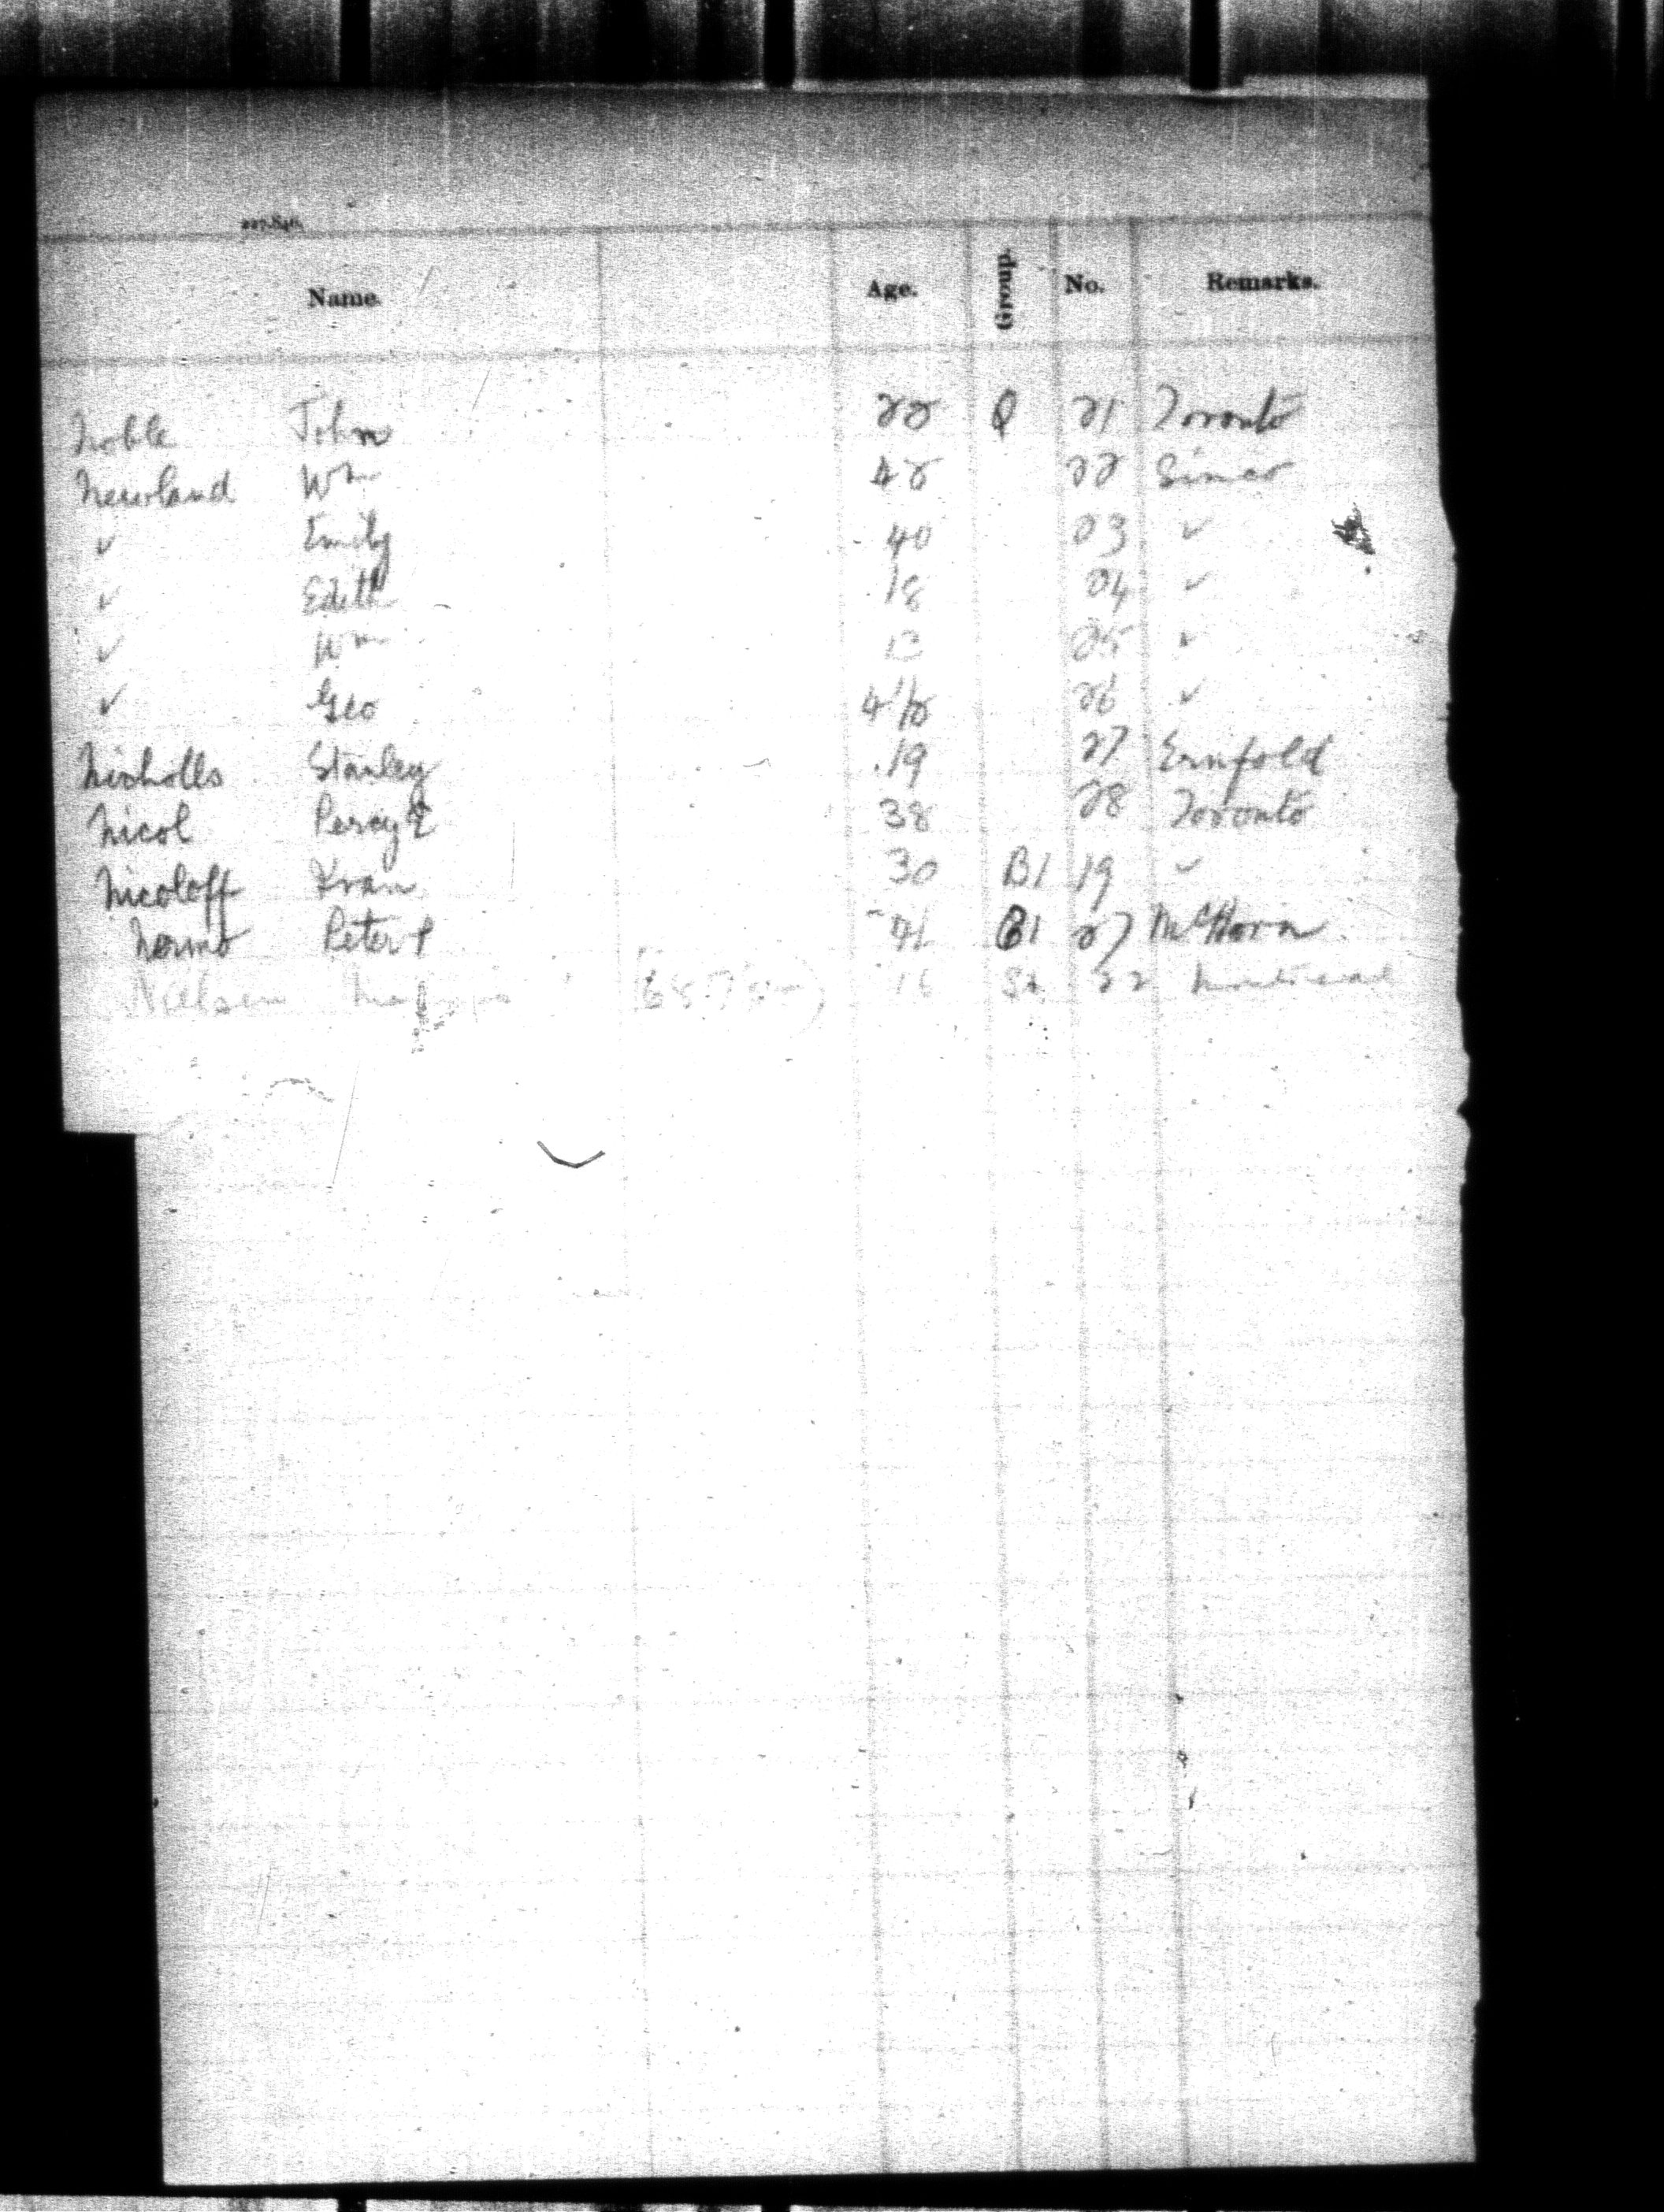 227,840.
Name. Age. Group. No. Remarks.
Noble John 22 Q 21 Toronto
Newland Wm 42 22 Simco
✓ Emily 40 23 ✓
✓ Edith 18 24 ✓
✓ Wm 13 25 ✓
✓ Geo 4 1/2 26 ✓
Nicholls Stanley 19 27 Ernfold
Nicol Percy E 38 28 Toronto
Nicoloff 30 B1 19 ✓
Peter P 41 B1 27
Nielsen 16 22